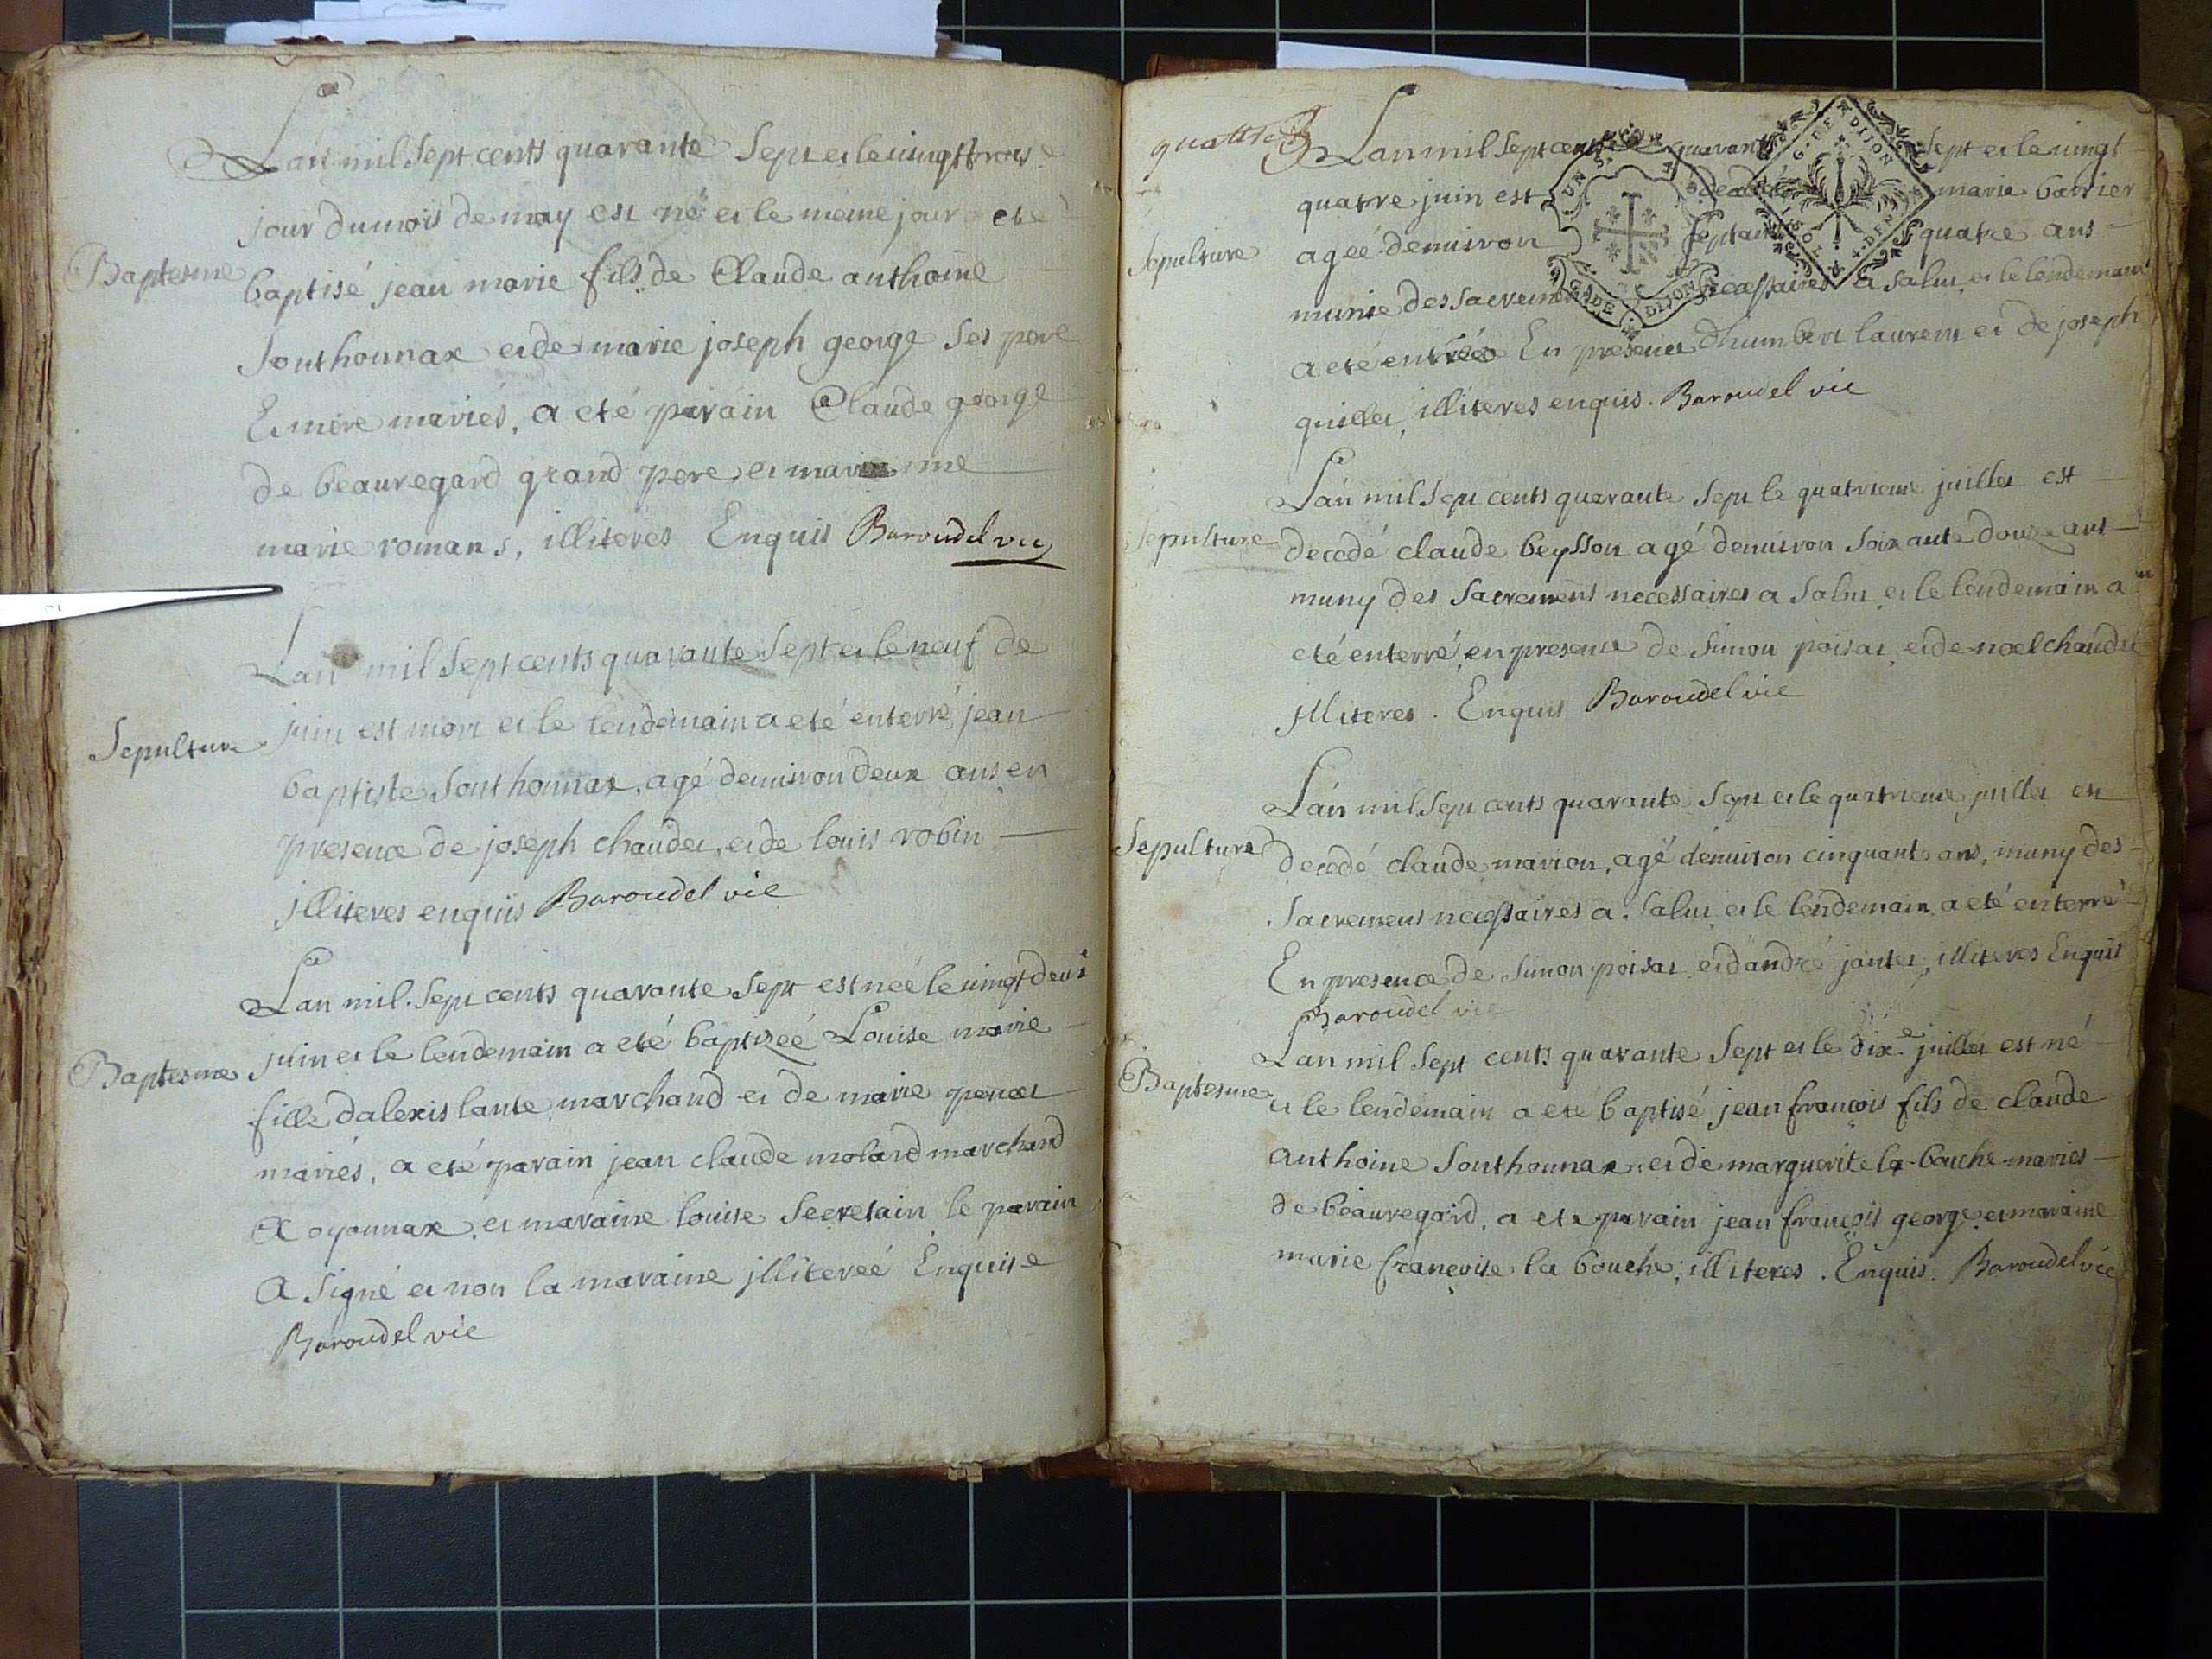 Lan mil Sept cents quarante Sept et le vingt trois
jour du mois de may est né et le meme jour a eté
Baptesme
baptisé jean marie fils de Claude anthoine
Sonthonnax et de marie joseph george Ses pere
Et mere mariés, a eté parain Claude george
de beauregard grand pere, et maraine
marie romans, illiteres Enquis Baroudel vic
Lan mil Sept cents quarante Sept et le neuf de
Sepulture
juin est mort et le lendemain a eté enterré jean
baptiste Sonthonnax, agé denviron deux ans en
presence de joseph chaudet, et de louis robin
illiteres enquis Baroudel vic
Lan mil Sept cents quarante Sept est née le vingt deux
Baptesme
juin et le lendemain a eté baptizée Louise marie
fille dalexis lante marchand et de marie
mariés, a eté parain jean claude molard marchand
a oyonnax, et maraine louise Secretain le parain
a Signé et non la maraine illiterée Enquise
Baroudel vic
Lan mil Sept cents quarante Sept et le vingt
quatre juin est decedée marie barrier
Sepulture
agée denviron Septante quatre ans
munie des Sacremens necessaires a Salut et le lendemain
a eté entrée En presence dhumbert laurent et de joseph
quillet, illiteres enquis. Baroudel vic
G. DE DIJON
DIJON
Lan mil Sept cents quarante Sept le quatrieme juillet est
Sepulture
decedé claude beysson agé denviron Soixante douze ans
muny des Sacremens necessaires a Salut et le lendemain a
eté enterré, en presence de Simon poisat et de noel chaudet
illiteres. Enquis Baroudel vic
Lan mil Sept cents quarante Sept et le quatrieme juillet est
Sepulture
decedé claude marion, agé denviron cinquante ans, muny des
Sacremens necessaires a Salut et le lendemain a eté enterré
En presence de Simon poisat et dandré jantet, illiteres Enquis
Baroudel vic
Lan mil Sept cents quarante Sept et le dixe juillet est né
Baptesme
et le lendemain a eté baptisé jean françois fils de claude
anthoine Sonthonnax, et de marguerite la bouche mariés
de beauregard, a eté parain jean françois george et maraine
marie françoise la bouche; illiteres. Enquis. Baroudel vic